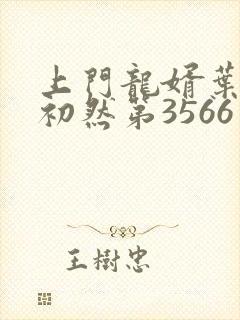 上門龍婿葉
初然第3566
王樹忠